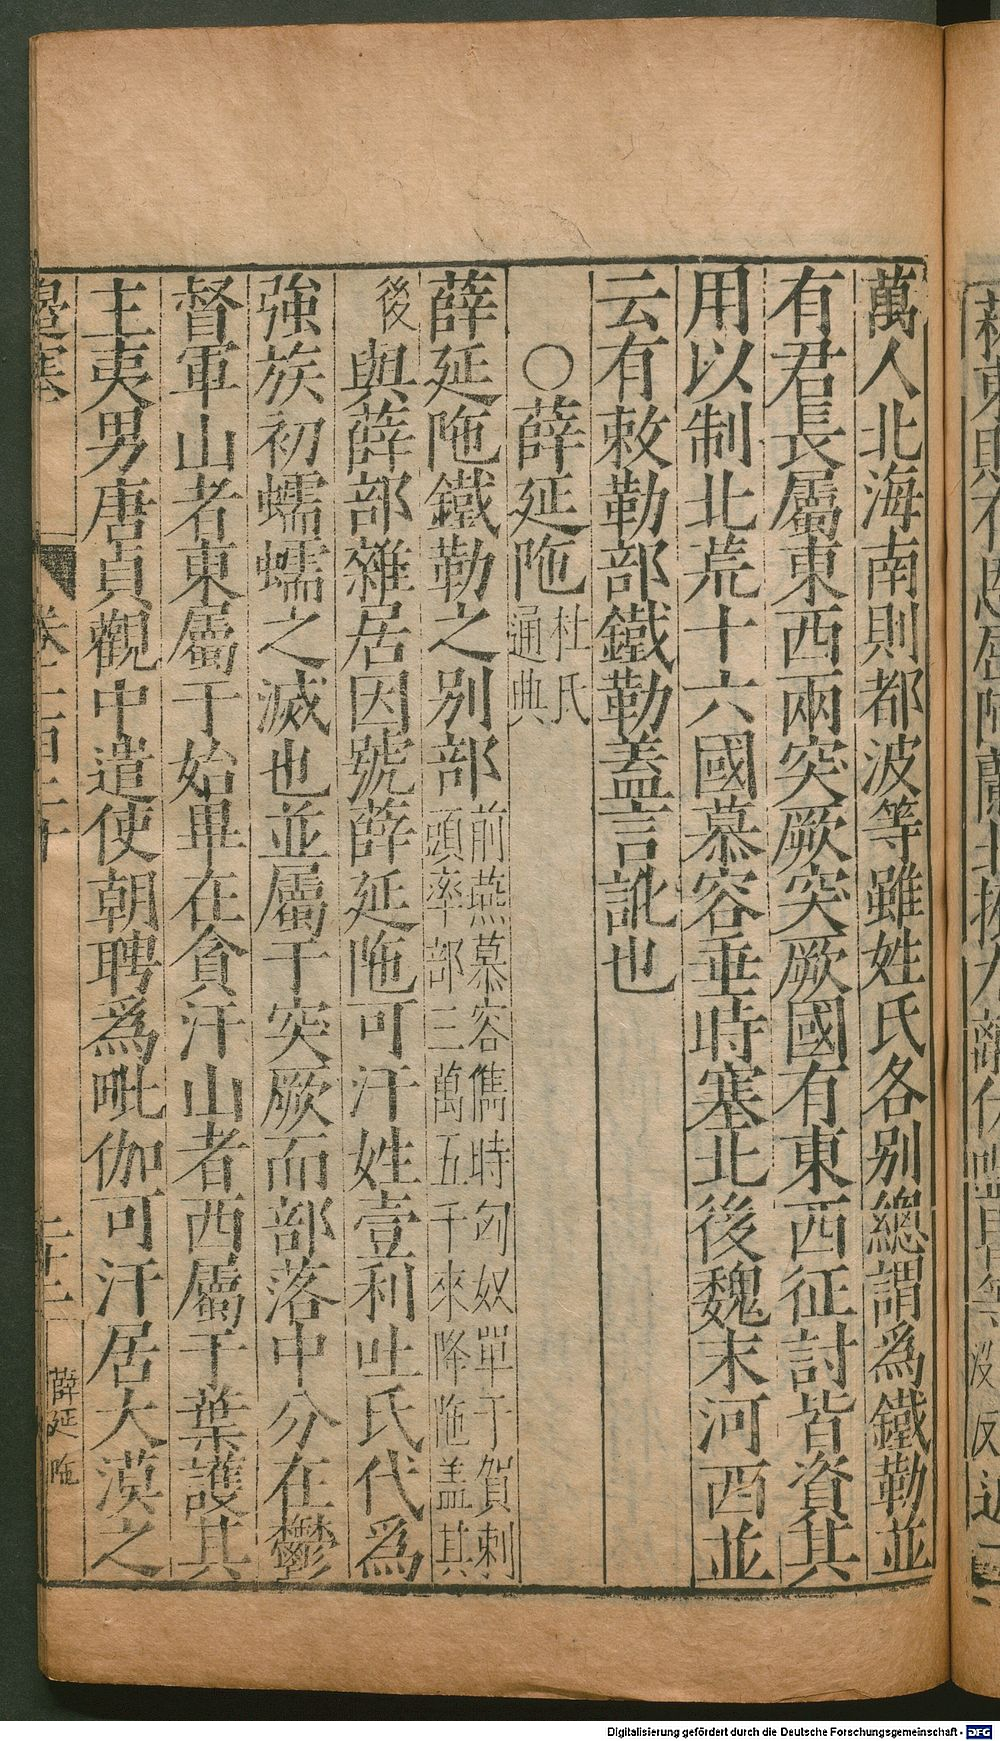 萬人北海南則都波等雖姓氏各別總謂爲鐵勒並
有君長屬東西兩突厥突厥國有東西征討皆資其
用以制北荒十六國慕容垂時塞北後魏末河西並
云有敕勒部鐵勒蓋言訛也
○薛延陁杜氏通典
薛延陁鐵勒之別部前燕慕容儁時匈奴單于賀刺頭率部三萬五千來降陁盖其
後與薛部雜居因號薛延陁可汗姓壹利吐氏代爲
強族初蠕蠕之滅也並屬于突厥而部落中分在鬱
督軍山者東屬于始畢在貪汗山者西屬于葉護其
主夷男唐貞觀中遣使朝聘爲毗伽可汗居大漠之
邊塞
薛延陁
Digitalisierung gefördert durch die Deutsche Forschungsgemeinschaft - DFG